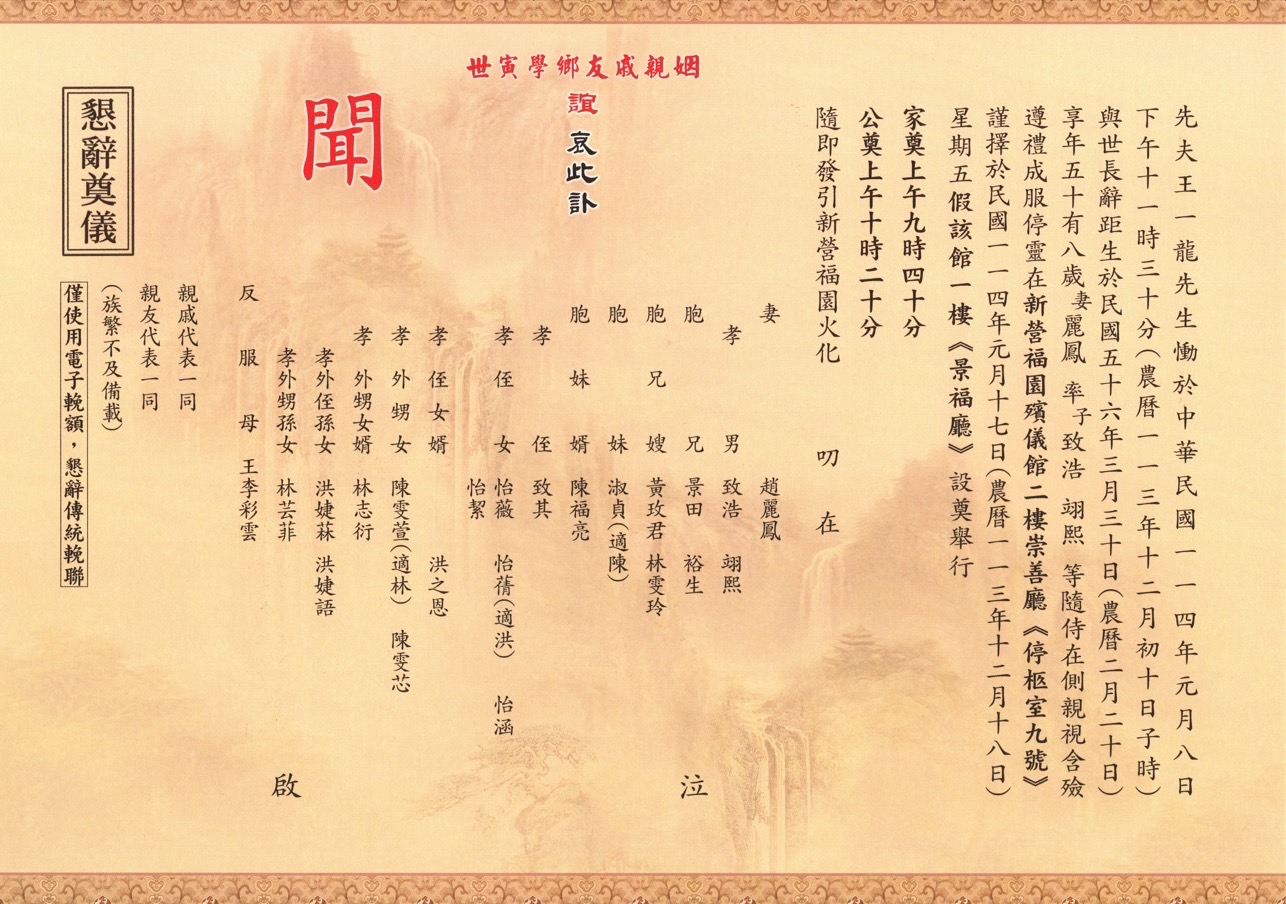 先夫王一龍先生慟於中華民國一一四年元月八日
下午十一時三十分(農曆一一三年十二月初十日子時)
與世長辭距生於民國五十六年三月三十日(農曆二月二十日)
享年五十有八歲妻麗鳳 率子致浩 翊熙 等隨侍在側親視含殮
遵禮成服停靈在新營福園殯儀館二樓崇善廳《停柩室九號》
謹擇於民國一一四年元月十七日(農曆一一三年十二月十八日)
星期五假該館一樓《景福廳》設奠舉行
家奠上午九時四十分
公奠上午十時二十分
隨即發引新營福園火化 叨在
姻親戚友鄉學寅世
誼 哀此訃
聞
妻 趙麗鳳
孝男 致浩 翊熙
胞兄 景田 裕生
胞兄嫂 黃玫君 林雯玲
胞妹 淑貞(適陳)
胞妹婿 陳福亮
孝侄 致其
孝侄女 怡薇 怡蒨(適洪) 怡涵
怡絜
孝侄女婿 洪之恩
孝外甥女 陳雯萱(適林) 陳雯芯
孝外甥女婿 林志衍
孝外侄孫女 洪婕菻 洪婕語
孝外甥孫女 林芸菲
反服母 王李彩雲
泣
啟
親戚代表一同
親友代表一同
(族繁不及備載)
懇辭奠儀
僅使用電子輓額，懇辭傳統輓聯